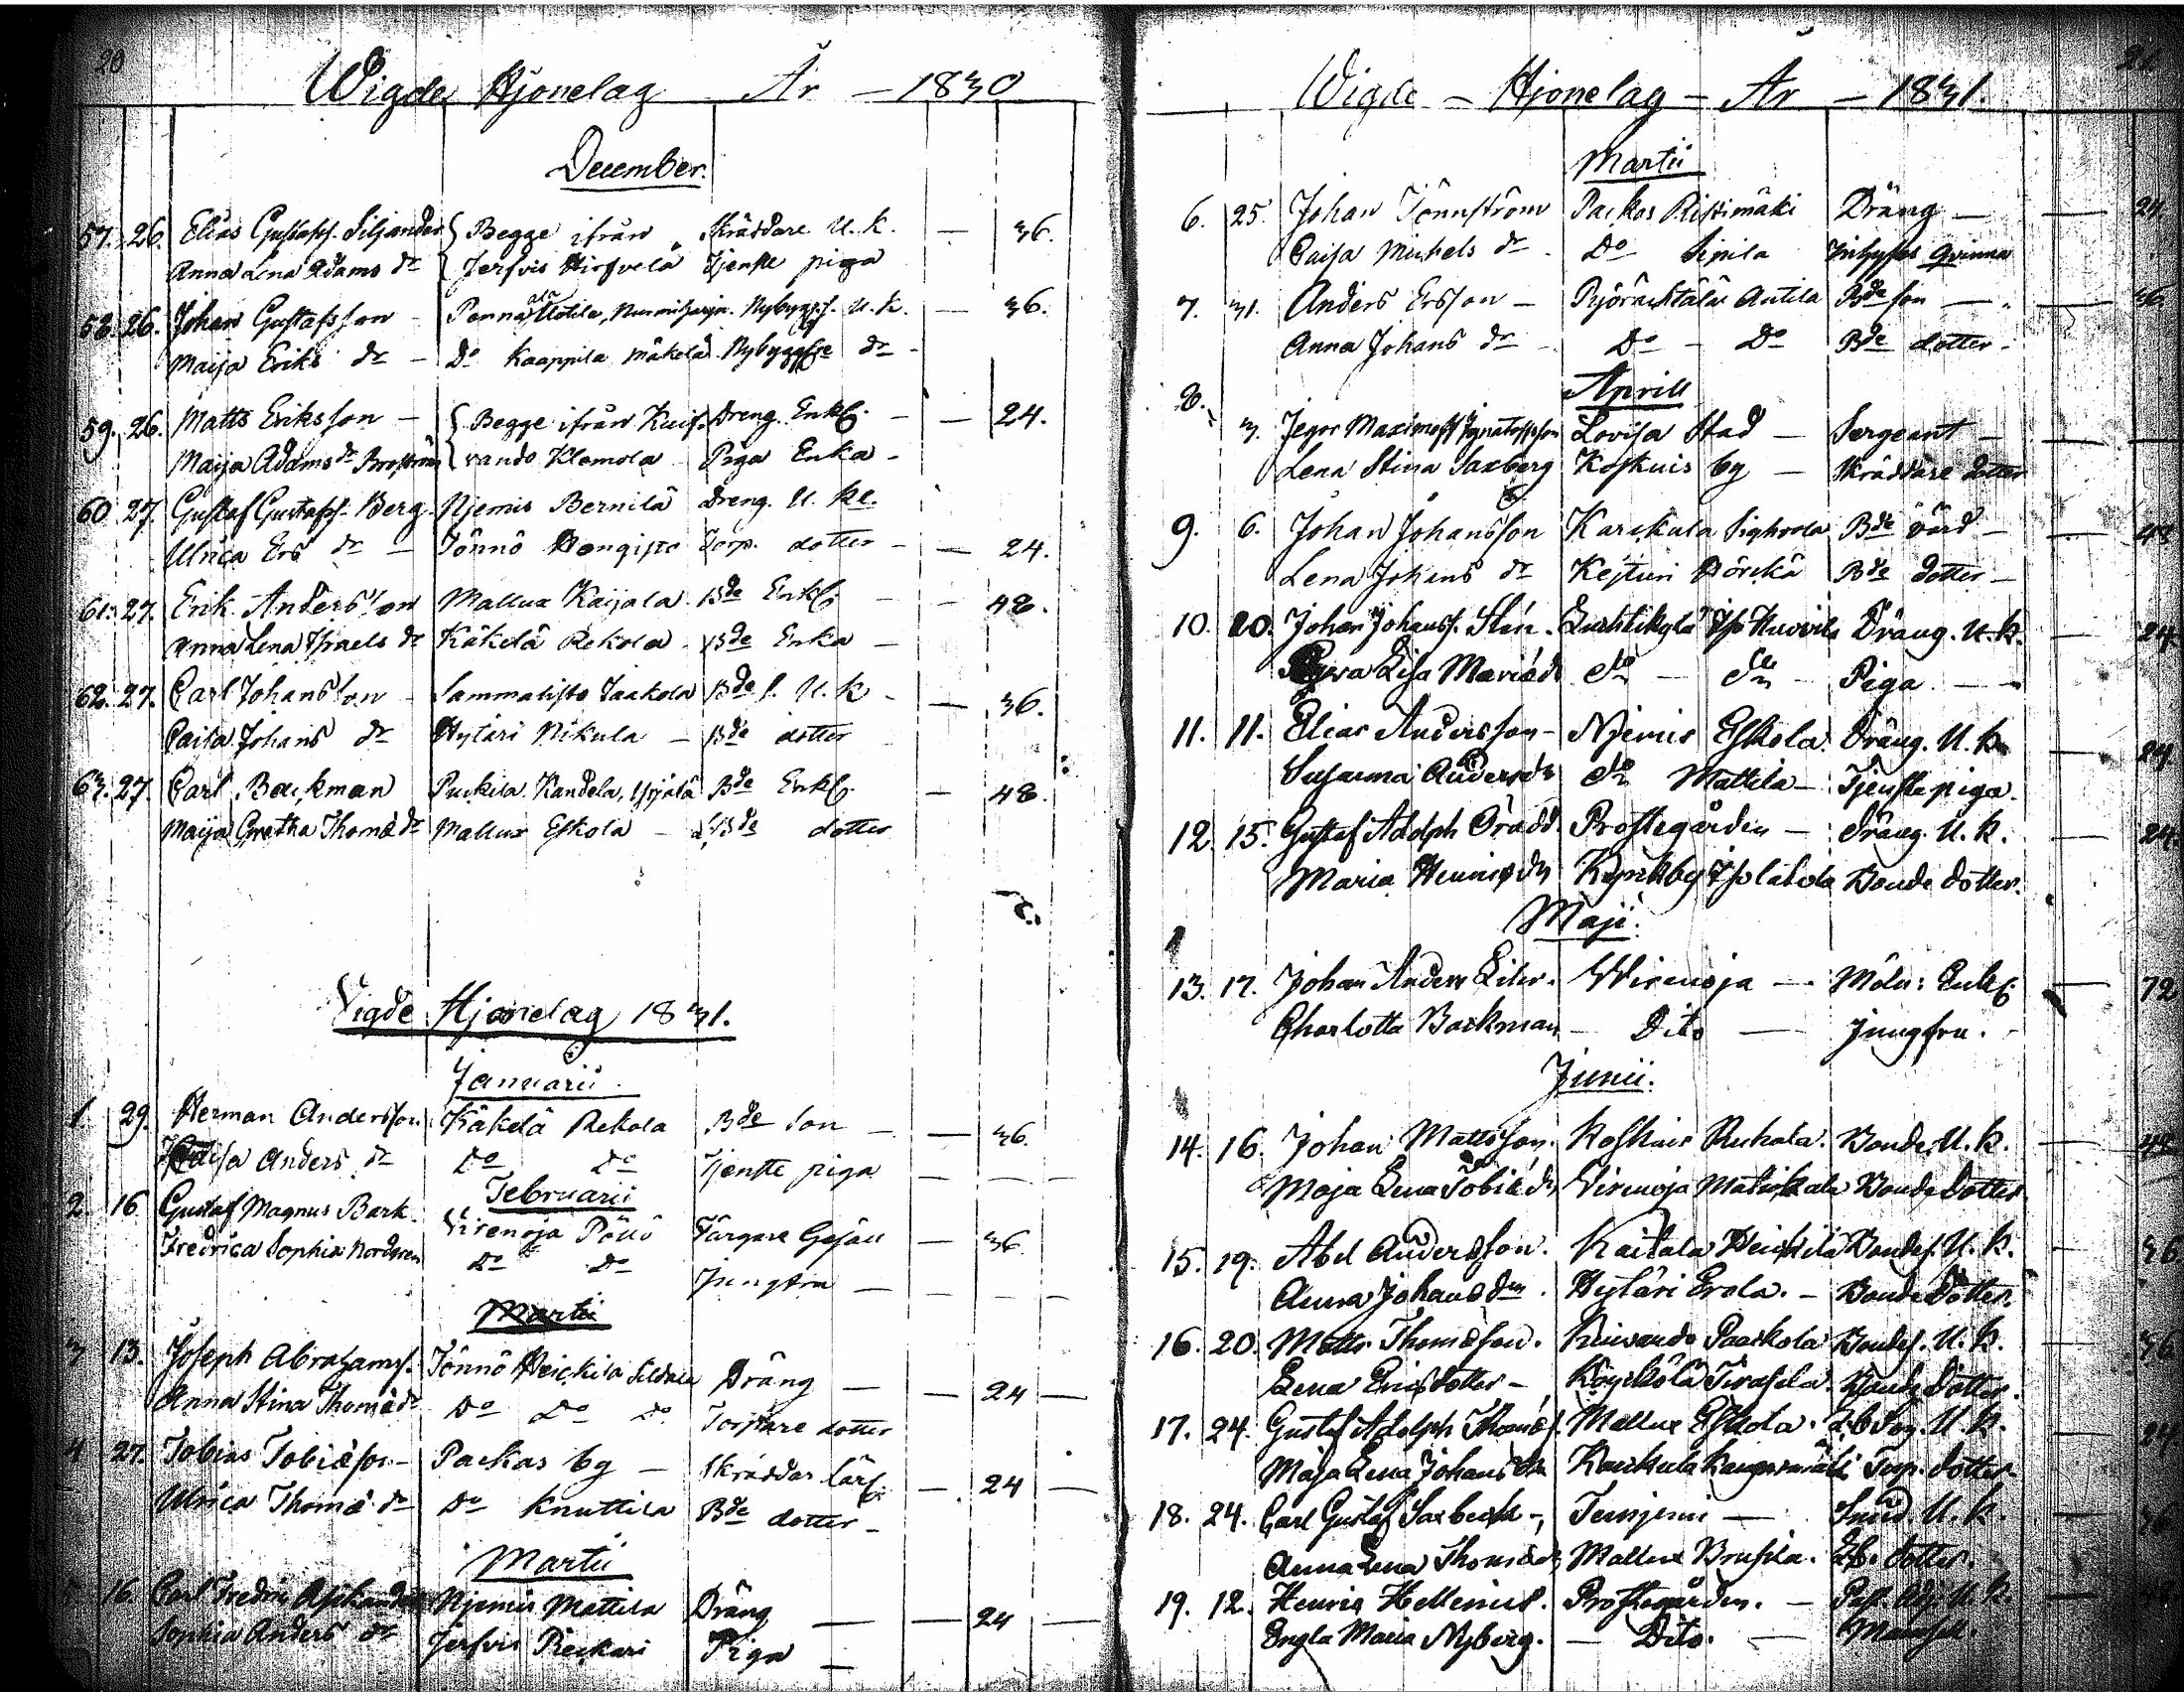 20
Wigde Hjonelag År - 1830
December.
57. 26. Elias Gustafss. Siljander { Begge ifrån Skräddare U. k. - 36.
Anna Lena Adams dr { Jerfvis Hirfvelä Tjenste piga
58. 26. Johan Gustafsson - Penna Uotila, Nybygg. s. U. k. - 36.
Maija Eriks dr - Do Kaappila Mäkelä Nybygg dr -
59. 26. Matts Eriksson - { Begge ifrån Kuif- Dreng. Enkl. - 24.
Maija Adams dr { vando Klemola Piga Enka -
60 27. Gustaf Gustafss. Berg. Njemis Bernilä Dreng. U. kl.
Ulrica Ers dr - Tönnö Hongisto Torp. dotter - 24.
61. 27. Erik Andersson Mallux Kaijala Bde Enkl. - 48.
Anna Lena Israels dr Käkelä Rekola Bde Enka -
62. 27. Carl Johansson - Sammalisto Jaakola Bde s. U. k - 36.
Caisa Johans dr Hytäri Nikula - Bde dotter
63. 27. Carl Backman Puckila Kandela, Yrjälä Bde Enkl. - 48.
Maija Gretha Thomæ dr Mallux Eskola - Bde dotter
Vigde Hjonelag 1831.
Januarii.
1. 29. Herman Andersson Käkelä Rekola Bde son - 36.
Caisa Anders dr Do Do Tjenste piga
Februarii
2. 16 Gustaf Magnus Bark. Virenoja Pönö Färgare Gesäll - 36
Fredrica Sophia Nordgren Do Do Jungfru -
Martii
3 13. Joseph Abrahamss. Tönnö Heickilä Sildala Dräng - 24 -
Anna Stina Thomæ dr Do Do Do Torpare dotter
4 27. Tobias Tobiæson - Packas by - Skräddar lärl. - 24 -
Ulrica Thomæ dr Do Knuttila Bde dotter -
Martii
5 16. Carl Fredric Njemis Mattila Dräng - 24 -
Sophia Anders dr Jerfvis Pieckari Piga -
21
Wigde - Hjonelag - År - 1831.
Martii
6. 25. Johan Tönnström Packas Ristimäki Dräng - 24.
Caisa Michels dr - Do Sipilä Inhyses Qvinna
7. 31. Anders Ersson - Pyöräntälä Antila Bde son - 36
Anna Johans dr - Do - Do Bde dotter -
Aprill
8. 3. Jegor Maximoff Ignatoffsson Lovisa Stad - Sergeant -
Lena Stina Saxberg Koskuis by - Skräddare dotter
9. 6. Johan Johansson Karekula Sighvola Bde värd - 48
Lena Johans dr Kejturi Hörckä Bde dotter -
10. 20. Johan Johanss. Stén. Luhtikylä Iso Huovila Dräng. U. k. - 24.
Lisa Mariædr do - do - Piga -
11. 11. Elias Andersson - Njemis Eskola. Dräng. U. k - 24
Susanna Andersdr do Mattila - Tjenste piga.
12. 15. Gustaf Adolph Prostegården - Dräng. U. k. - 24.
Maria Henricsdr Kynikby Isolatola Bonde dotter.
Maji.
13. 17. Johan Anders Liter. Wirenoja - Möln: Enkl. - 72
Charlotta Backman - Dito - Jungfru.
Junii.
14. 16. Johan Mattsson. Koskuis Ruhala. Bondes. U. k. 48
Maja Lena Tobiædr Virenoja Bonde dotter
15. 19. Abel Andersson. Kaitala Heickilä Bondes. U. k. 36
Anna Johansdr. Hytäri Erola. - Bonde Dotter.
16. 20. Matts Thomæson. Kuivando Paackola Bondes. U. k. 36
Lena Ericsdotter - Köyckölä Tirasela. Bonde Dotter.
17. 24. Gustaf Adolph Thomæs. Mallux Eskola. U. k. 24
Maja Lena Johansdr Karekula Kangasmäki Torp. dotter
18. 24. Carl Gustaf Saxbeck -, Tennjemi - Smed U. k. 36
Anna Lena Thomædr Mallux Brusila. dotter.
19. 12. Henric Hellenius. Prostegården. - Past. Adj. U. k.
Engla Maria Nyberg. - Dito. - Mamsell.